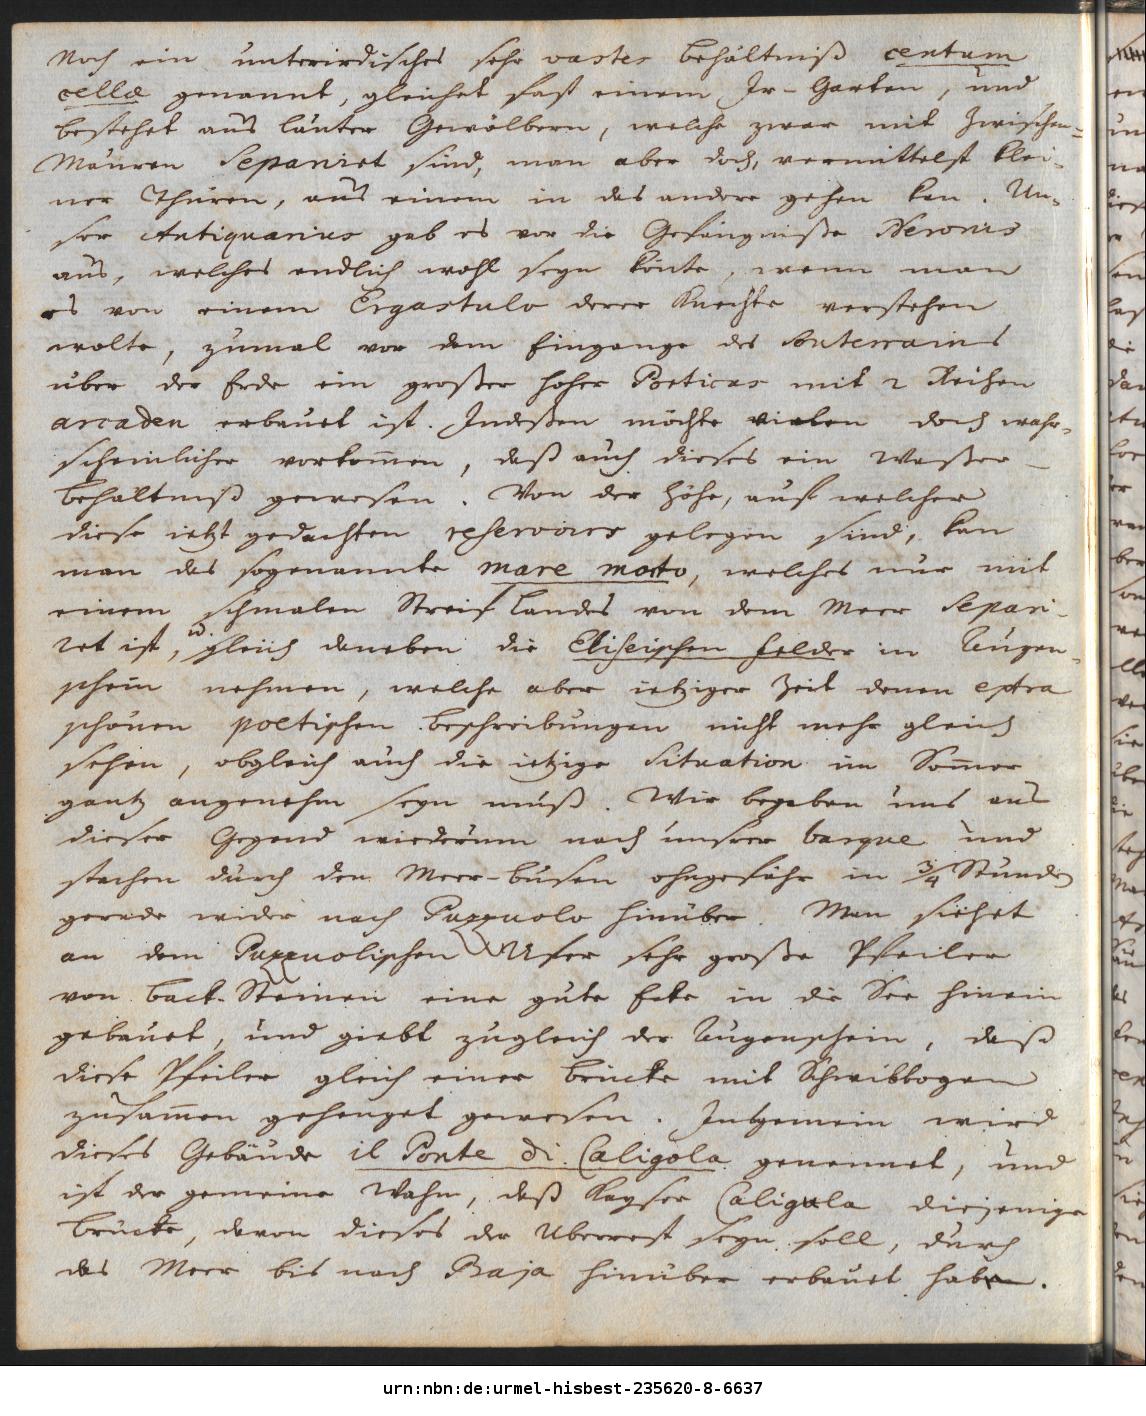 Noch ein unterirdisches sehr vastes Behältniß centum
cellæ genannt, gleichet fast einem Ir-Garten, und
bestehet aus lauter Gewölbern, welche zwar mit Zwischen-
Mauren Separiret sind, man aber doch, vermittelst klei-
ner Thüren, aus einem in das andere gehen kan. Un-
ser Antiquarius gab es vor die Gefängniße Neronis
aus, welches endlich wohl seyn könte, wenn man
es von einem Ergastulo derer Knechte verstehen
wolte, zumal vor dem Eingange des Souterrains
über der Erde ein großer hoher Porticus mit 2 Reihen
arcaden erbauet ist. Indeßen möchte vielen doch wahr-
scheinlicher vorkom̄en, daß auch dieses ein Waßer-
behältniß gewesen. Von der Höhe, auf welcher
diese ietzt gedachten reservoirs gelegen sind, kan
man das sogenannte mare morto, welches nur mit
einem schmalen Streif Landes von dem Meer Separi-
ret ist, u. gleich daneben die Eliseischen Felder in Augen-
schein nehmen, welche aber ietziger Zeit denen extra
schönen poetischen Beschreibungen nicht mehr gleich
sehen, obgleich auch die ietzige Situation im Som̄er
gantz angenehm seyn muß. Wir begaben uns aus
dieser Gegend wiederum nach unsrer barque und
stachen durch den Meer-busen ohngefähr in 3/4 Stunden
gerade wider nach Puzzuolo hinüber. Man siehet
an dem Puzzuolischen Ufer sehr große Pfeiler
von back-Steinen eine gute Ecke in die See hinein
gebauet, und giebt zugleich der Augenschein, daß
diese Pfeiler gleich einer Brücke mit Schwibbogen
zusam̄en gehenget gewesen. Insgemein wird
dieses Gebäude il Ponte di Caligola genennet, und
ist der gemeine Wahn, daß Kayser Caligula diejenige
Brücke, davon dieses der Uberrest seyn soll, durch
das Meer bis nach Baja hinüber erbauet habe.
urn:nbn:de:urmel-hisbest-235620-8-6637